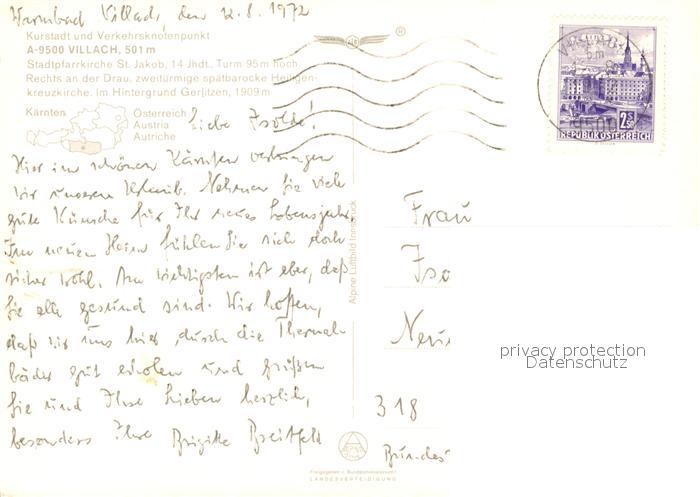 Warmbad Villach, den 12.8.1972
Kurstadt und Verkehrsknotenpunkt
A-9500 VILLACH, 501 m
Stadtpfarrkirche St. Jakob, 14 Jhdt., Turm 95 m hoch.
Rechts an der Drau, zweitürmige spätbarocke Heiligen-
kreuzkirche. Im Hintergrund Gerlitzen, 1909 m
Kärnten
Österreich
Austria
Autriche
Liebe Isolde!
Hier im schönen Kärnten verbringen
wir unseren Urlaub. Nehmen Sie viele
gute Wünsche für Ihr neues Lebensjahr.
Im neuen Heim fühlen Sie sich doch
sicher wohl. Am wichtigsten ist aber, daß
Sie alle gesund sind. Wir hoffen,
daß wir uns hier durch die Thermal-
bäder gut erholen und grüßen
Sie und Ihre Lieben herzlich,
besonders Ihre Brigitte Breitfeld
Alpine Luftbild Innsbruck
REPUBLIK ÖSTERREICH
2.50
S
Frau
Iso
Neu
318
Bundes
privacy protection
Datenschutz
Freigegeben v. Bundesministerium f.
LANDESVERTEIDIGUNG